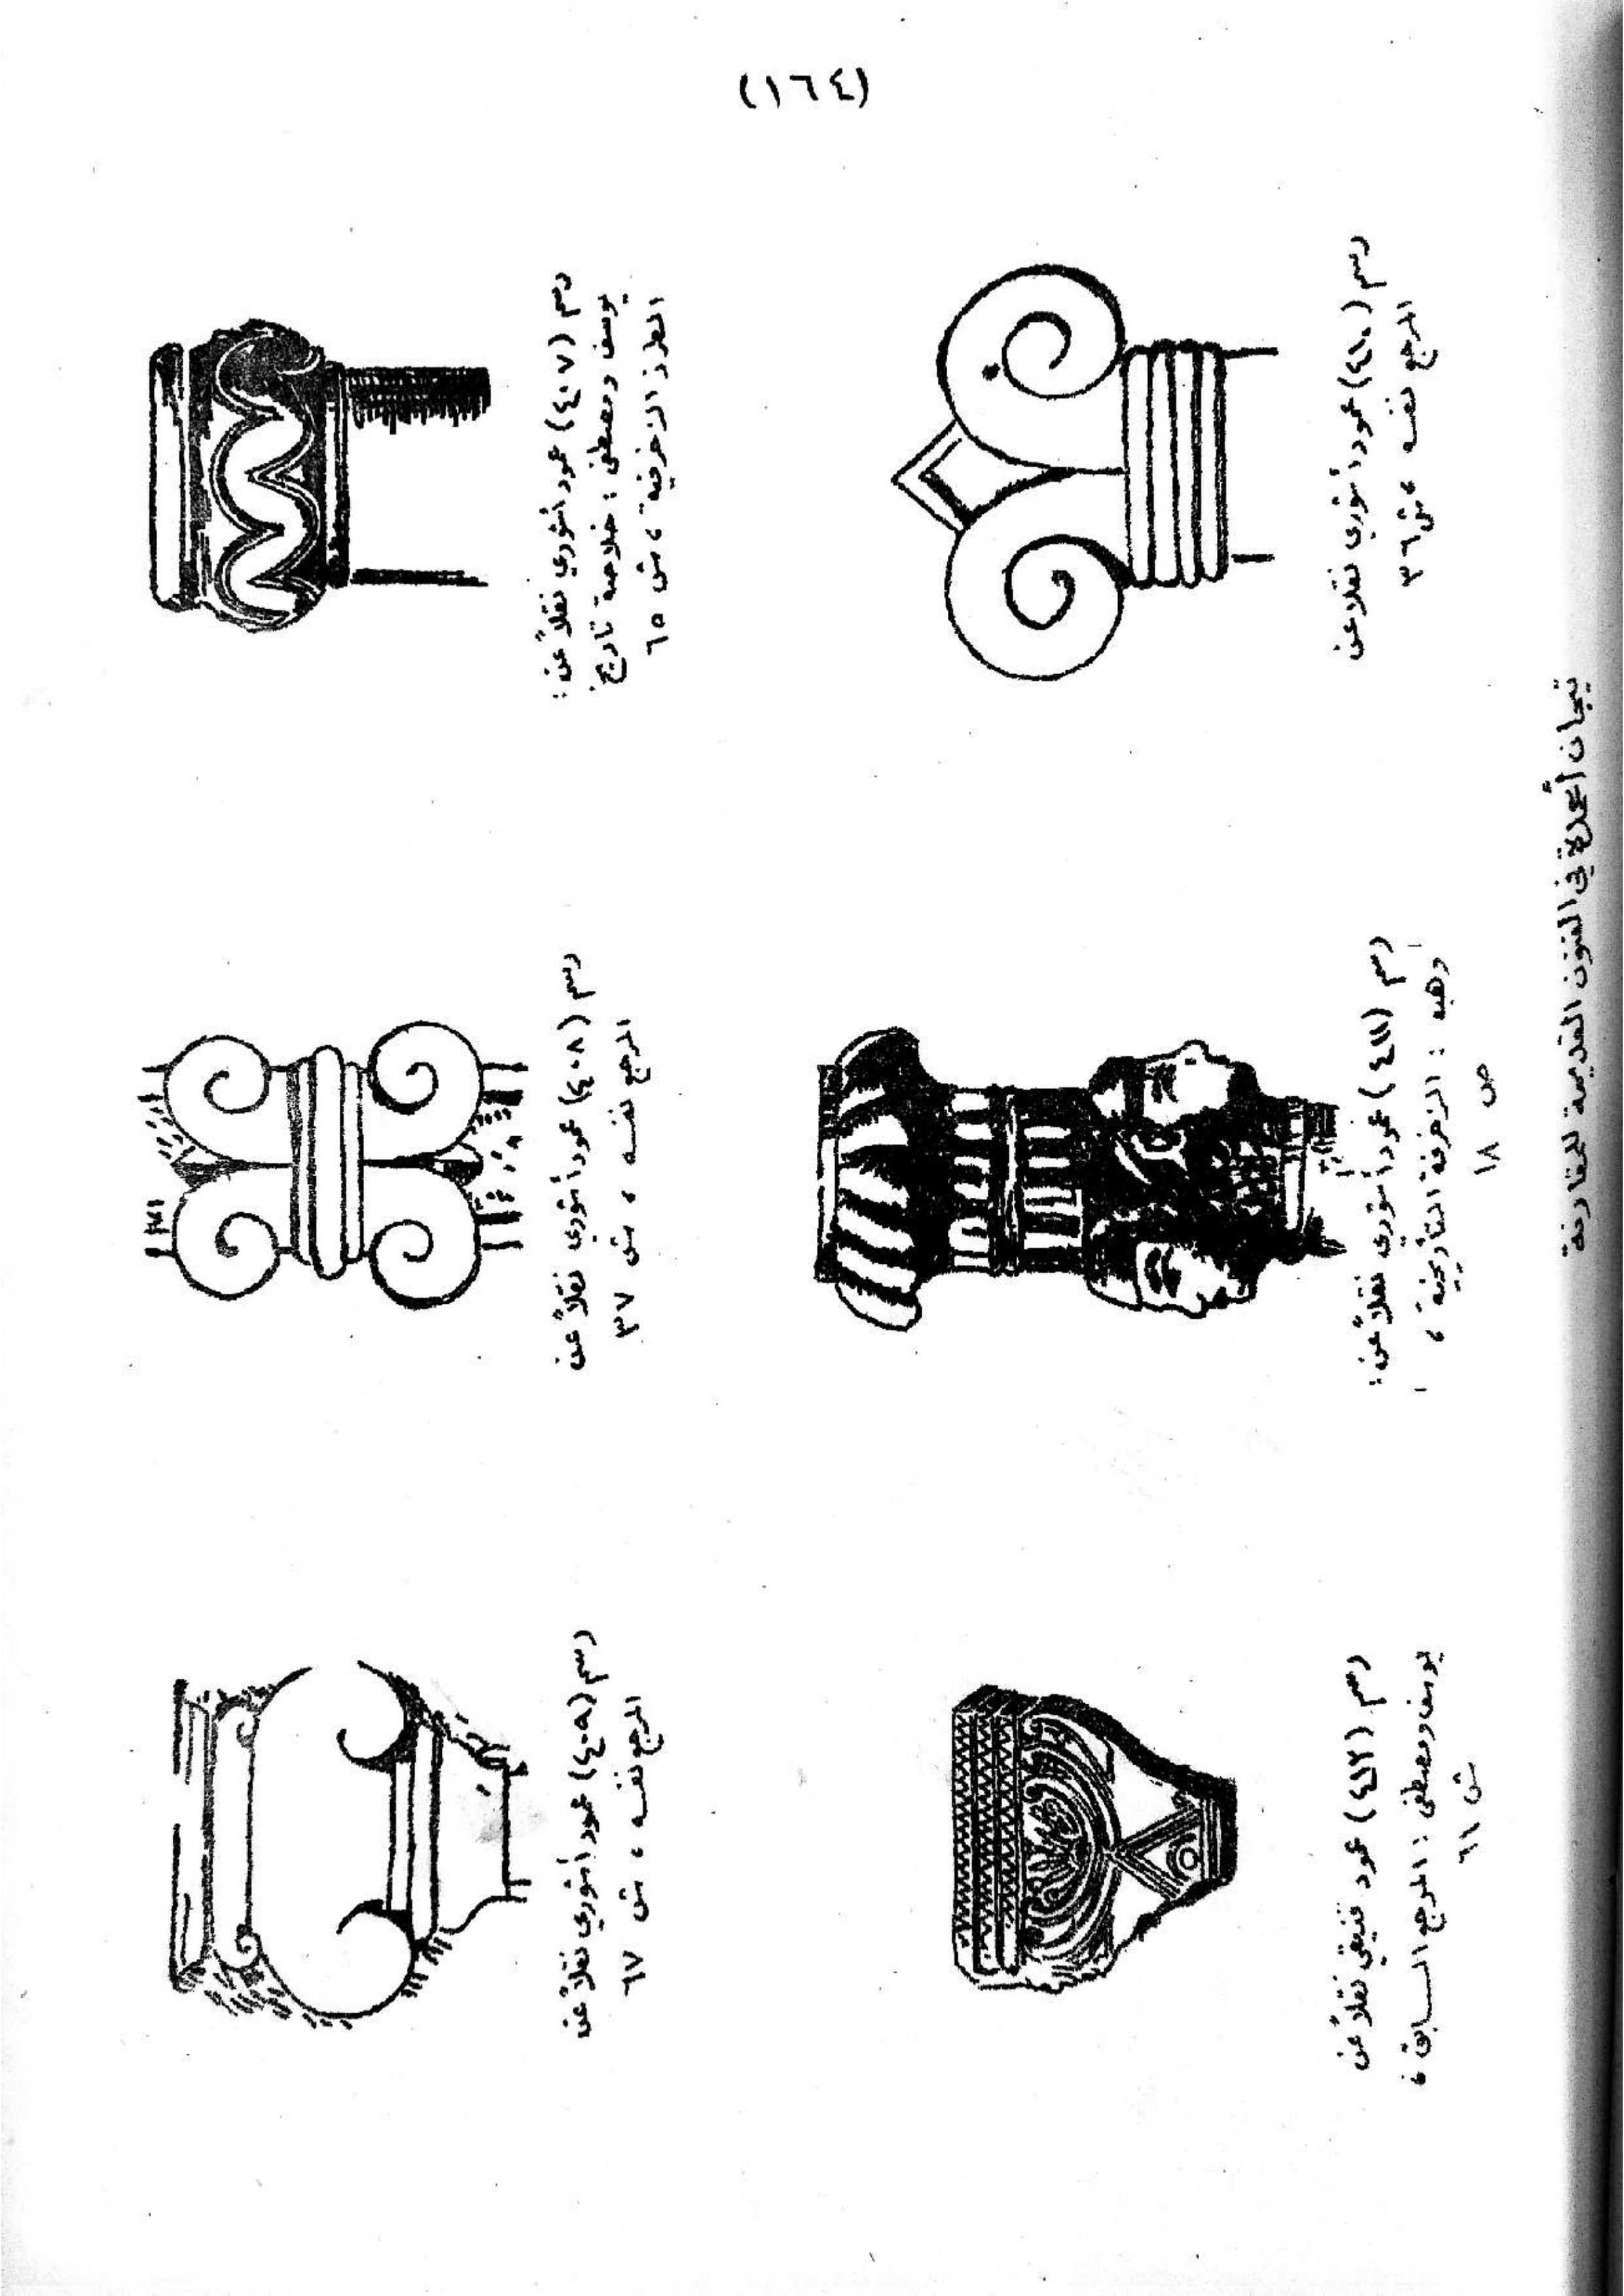 (١٦٤)
رسم (٤٠٧) عمود أشوري نقلاً عن :
يوسف ومصطفى : خلاصة تاريخ
الطرز الزخرفية ، ش ٦٥
رسم (٤٠٨) عمود أشوري نقلاً عن
المرجع نفسه ، ش ٣٧
رسم (٤٠٩) عمود أشوري نقلاً عن
المرجع نفسه ، ش ٦٧
رسم (٤١٠) عمود أشوري نقلاً عن
المرجع نفسه ، ش ٣٦
رسم (٤١١) عمود أشوري نقلاً عن :
وهبه : الزخرفة التأريخية ،
ص ١٨
رسم (٤١٢) عمود فنيقي نقلاً عن
يوسف ومصطفى : المرجع السابق ،
ش ٦١
تيجان أعمدة في الفنون القديمة للمقارنة